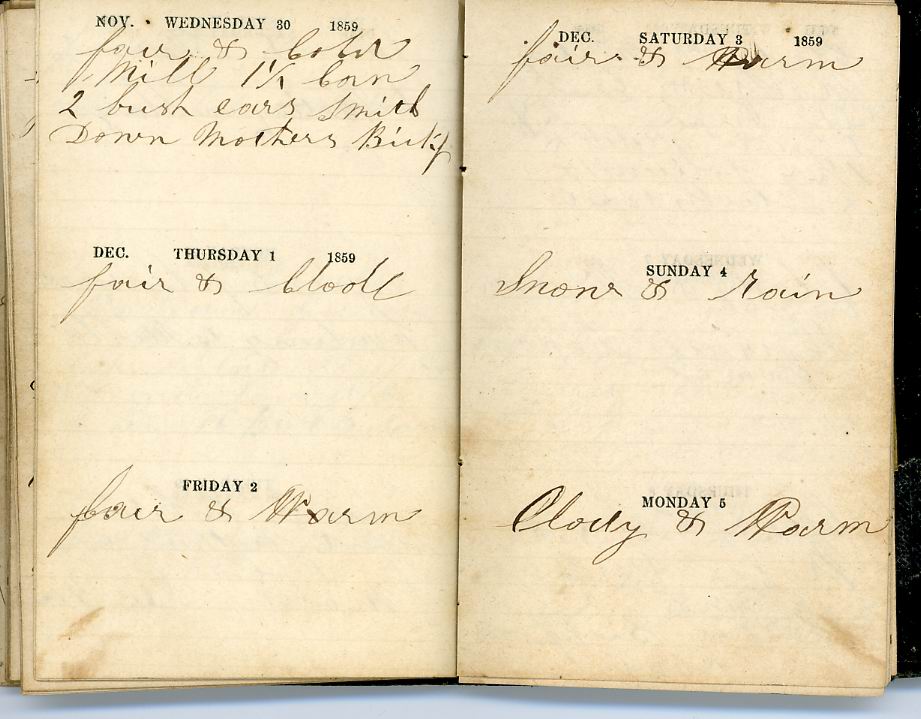 NOV. WEDNESDAY 30 1859
fair & Cold
Mill 1½ Corn
2 bush ears Smith
Down Mothers
DEC. THURSDAY 1 1859
fair &
FRIDAY 2
fair & Warm
DEC. SATURDAY 3 1859
fair & Warm
SUNDAY 4
Snow & rain
MONDAY 5
Clody & Warm